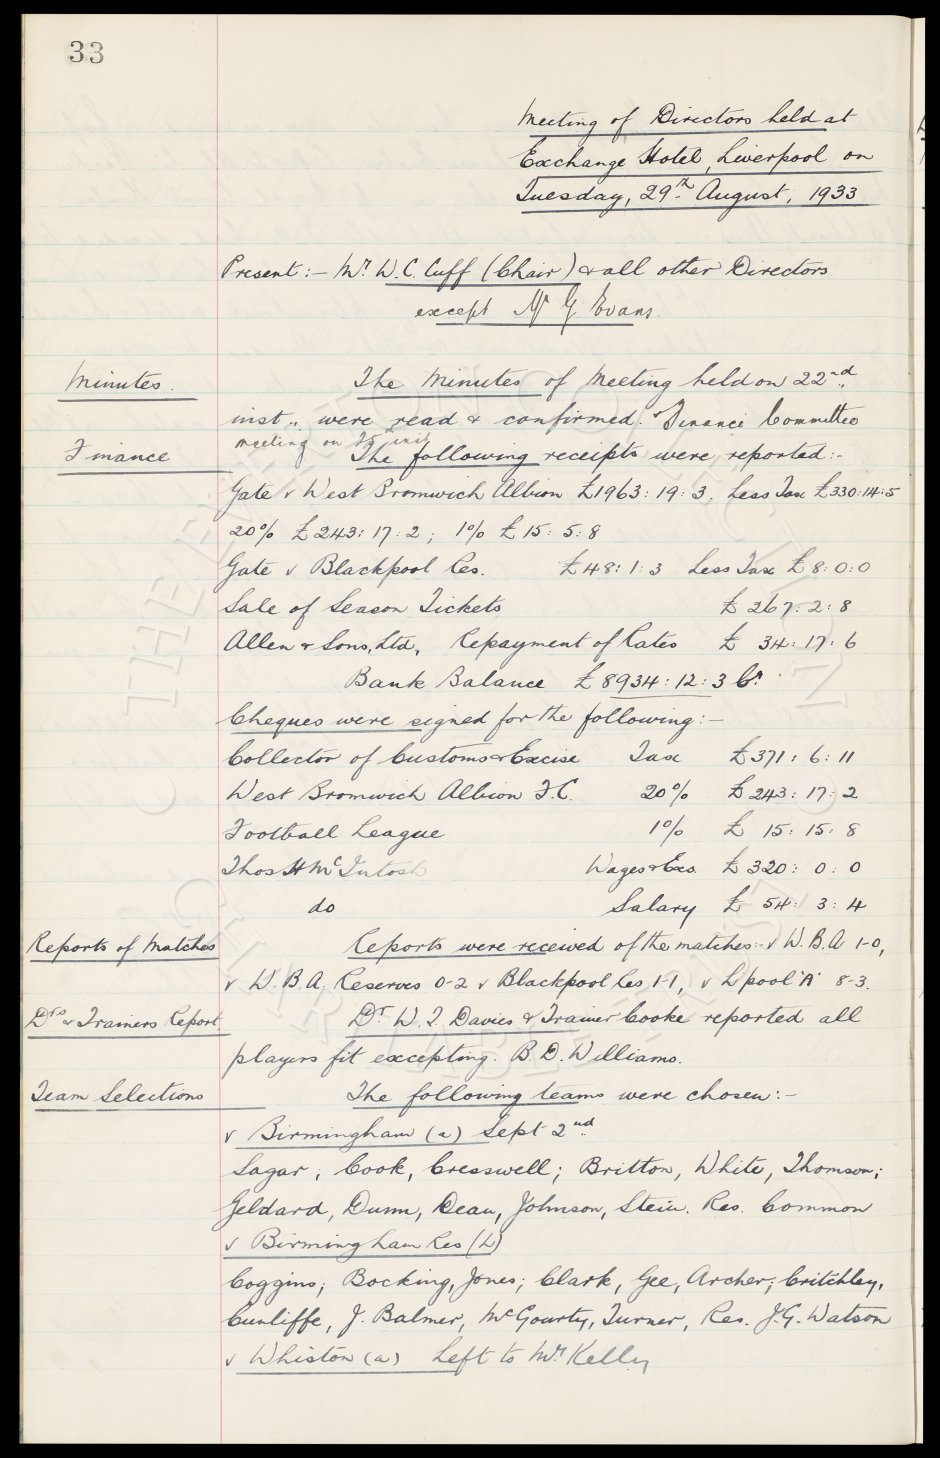 33
Meeting of Directors held at
Exchange Hotel, Liverpool on
Tuesday, 29th August, 1933
Present :- Mr. W.C. Cuff (Chair) & all other Directors
except Mr G Evans.
Minutes. The Minutes of Meeting held on 22nd
inst., were read & confirmed. & Finance Committee
meeting on 25 inst
Finance The following receipts were reported:-
Gate v West Bromwich Albion £1963: 19: 3. Less Tax £330:14:5
20% £243: 17: 2; 1% £15: 5: 8
Gate v Blackpool Res. £48: 1: 3 Less Tax £8: 0: 0
Sale of Season Tickets £267: 2: 8
Allen & Sons, Ltd, Repayment of Rates £ 34: 17: 6
Bank Balance £8934: 12: 3 Cr.
Cheques were signed for the following:-
Collector of Customs & Excise Tax £371: 6: 11
West Bromwich Albion F.C. 20% £243: 17: 2
Football League 1% £ 15: 15: 8
Thos H McIntosh Wages & Exs. £320: 0: 0
do Salary £ 54: 3: 4
Reports of Matches Reports were received of the matches:- v W.B.A 1-0,
v W.B.A. Reserves 0-2 v Blackpool Res 1-1, v L'pool 'A' 8-3.
Drs & Trainers Report Dr. W.J. Davies & Trainer Cooke reported all
players fit excepting. B.D. Williams.
Team Selections The following teams were chosen:-
v Birmingham (a) Sept 2nd.
Sagar; Cook, Cresswell; Britton, White, Thomson;
Geldard, Dunn, Dean, Johnson, Stein. Res. Common
v Birmingham Res (H)
Coggins; Bocking, Jones; Clark, Gee, Archer; Critchley,
Cunliffe, J. Balmer, McGourty, Turner, Res. J.G. Watson
v Whiston (a) Left to Mr Kelly
THE EVERTON